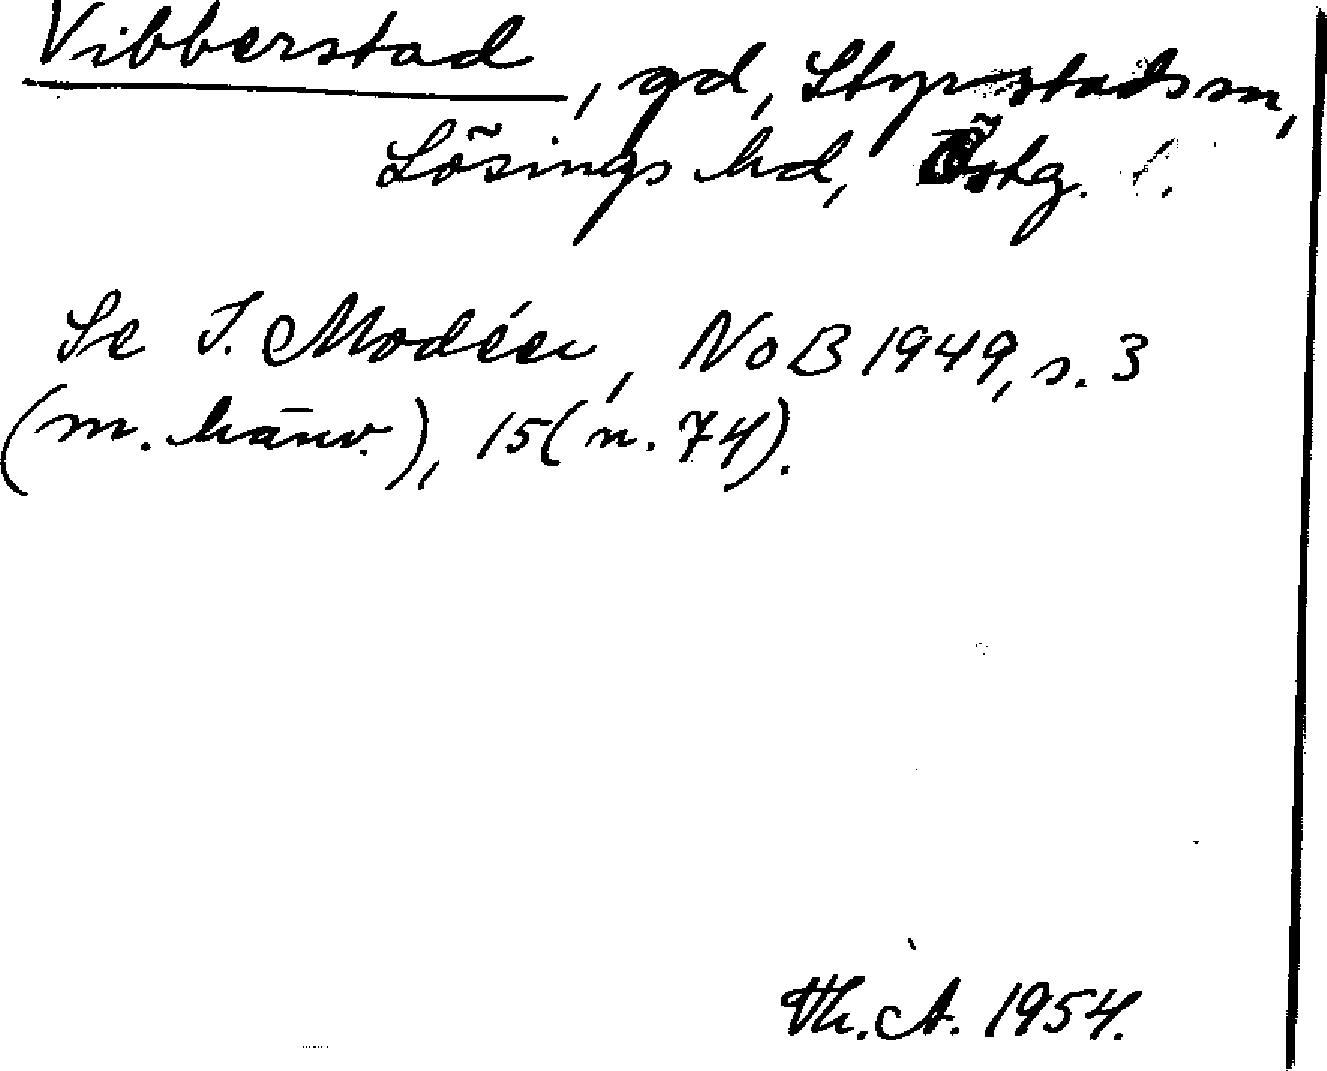 Vibberstad, gd, Styrstads sn,
Lösings hd, Östg. l.
Se I. Modéer, NoB 1949, s. 3
(m. hänv.), 15 (n. 74).
Th. A. 1954.